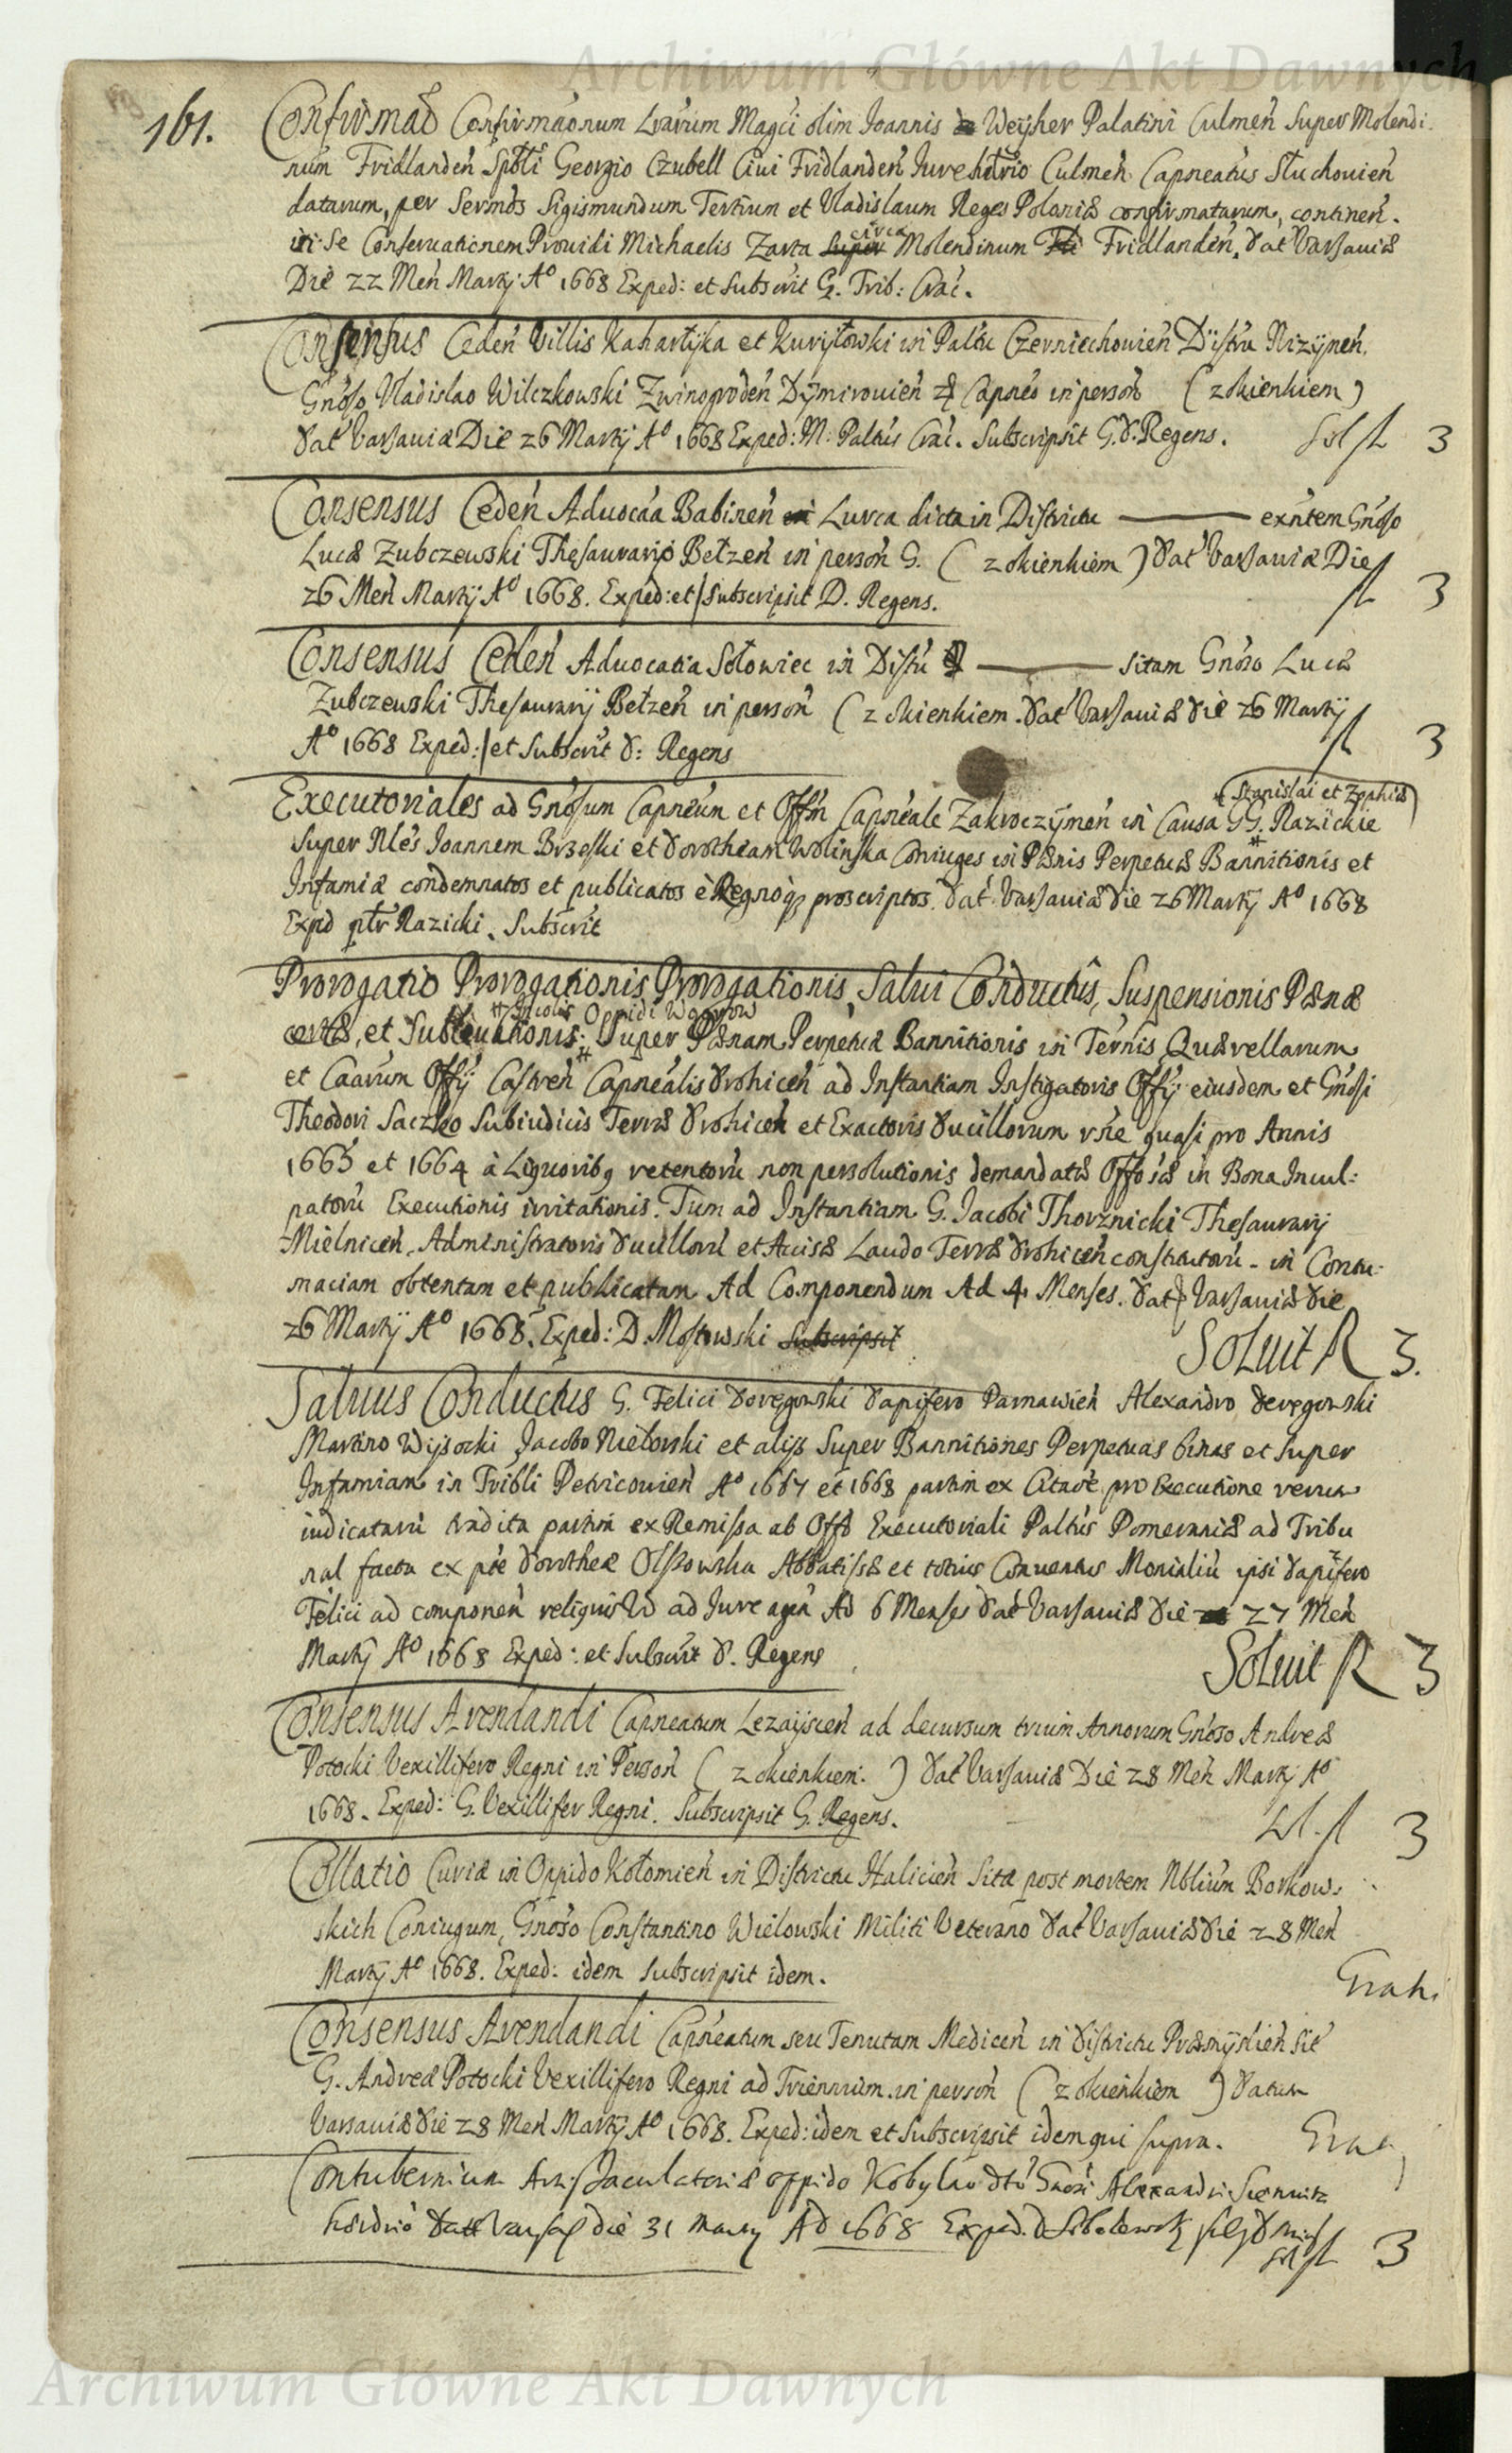 Archiwum Główne Akt Dawnych
161.
Confirmaõ Confirmaõnum Lrarum Magci olim Joannis Weÿher Palatini Culmeñ Super Molendi-
num Fridlandeñ Georgio Czubell Ciui Fridlandeñ Culmeñ Capneatus Słuchouieñ
datarum, per Sermos Sigismundum Tertium et Vladislaum Reges Poloniæ confirmatarum, continen.
in Se Conseruationem Prouidi Michaelis Zarta circa Molendinum Fridlandeñ. Dat Varsauiæ
Die 22 Meñ Martij Aº 1668 Exped: et Subscrit G. Trib: Crac.
Consensus Cedeñ Villis et in Paltu Czerniechouieñ Distru Nizÿneñ.
Gnoso Vladislao Wilczkowski Zwinogrodeñ Dÿmirouieñ Capneo in persoñ (z okienkiem)
Dat Varsauiæ Die 26 Martij Aº 1668 Exped: M: Paltus Crac. Subscripsit G. D. Regens. Sol fl 3
Consensus Cedeñ Aduocãa Babineñ Lurca dicta in Districtu ——— exñtem Gnoso
Lucæ Zubczewski Thesaurario Bełzeñ in persoñ G. (z okienkiem) Dat Varsauiæ Die
26 Meñ Martij Aº 1668. Exped: et Subscripsit D. Regens. fl 3
Consensus Cedeñ Aduocatia Sołowiec in Distu ——— sitam Gnoso Lucæ
Zubczewski Thesaurarij Bełzeñ in persoñ (z okienkiem. Dat Varsauiæ Die 26 Martij
Aº 1668 Exped: et Subscrit D: Regens fl 3
Stanislai et Zophiæ
Executoriales ad Gnosum Capneum et Offm Capneale Zakroczÿmeñ in Causa GG. Razickie
Super Nles Joannem Brzeski et Dorotheam Wolinska Coniuges in Pænis Perpetuæ Bannitionis et
Infamiæ condemnatos et publicatos è Regnoq proscriptos. Dat Varsauiæ Die 26 Martij Aº 1668
Exped Razicki. Subscrit
Prorogatio Prorogationis Prorogationis, Salui Conductûs, Suspensionis Pænæ
# Incolis Oppidi Wogrow
certæ, et Subleuationis: # Super Pænam Perpetuæ Bannitionis in Ternis Quærellarum
et Caarum Offij Castreñ Capnealis Drohiceñ ad Instantiam Instigatoris Offij eiusdem et Gnosi
Theodori Saczko Subiudicis Terræ Drohiceñ et Exactoris Ducillorum quasi pro Annis
1663 et 1664 à Liquoribq retentorũ non persolutionis demandatæ in Bona Incul-
patorũ Executionis irritationis. Tum ad Instantiam G. Jacobi Thorznicki Thesaurarij
Mielniceñ, Administratoris Ducillorũ et Laudo Terræ Drohiceñ constitutorũ - in Contu-
maciam obtentam et publicatam Ad Componendum Ad 4 Menses. Dat Varsauiæ Die
26 Martij Aº 1668. Exped: D. Mostowski Subscripsit Soluit R 3.
Saluus Conductus G. Felici Doręgowski Dapifero Parnawieñ Alexandro Deręgowski
Martino Wÿsocki Jacobo Nietowski et alijs Super Bannitiones Perpetuas binas et super
Infamiam in Tribli Petricouieñ Aº 1667 et 1668 partim ex pro Executione rerum
iudicatarũ tradita partim ex Remissa ab Offo Executoriali Paltus Pomeraniæ ad Tribu
nal facta ex pte Dorotheæ Olszowska Abbatissæ et totius Conuentus Monialiũ ipsi Dapifero
Felici ad componeñ reliquis ad Jure ageñ Ad 6 Menses Dat Varsauiæ Die 27 Meñ
Martij Aº 1668 Exped: et Subscrit D. Regens Soluit R 3
Consensus Arendandi Capneatum Lezaÿsceñ ad decursum trium Annorum Gnoso Andreæ
Potocki Vexillifero Regni in Persoñ (z okienkiem.) Dat Varsauiæ Die 28 Meñ Martij Aº
1668. Exped: G. Vexillifer Regni. Subscripsit G. Regens. Sol. fl 3
Collatio Curiæ in Oppido Kołomieñ in Districtu Haliceñ Sita post mortem Nblium Borkow-
skich Coniugum, Gnoso Constantino Wielowski Militi Veterano Dat Varsauiæ Die 28 Meñ
Martij Aº 1668. Exped: idem subscripsit idem. Gratis
Consensus Arendandi Capneatum seu Tenutam Mediceñ in Districtu Præmÿslieñ sit
G. Andreæ Potocki Vexillifero Regni ad Triennium in persoñ (z okienkiem) Datum
Varsauiæ Die 28 Meñ Martij Aº 1668. Exped: idem et Subscripsit idem qui supra.
Contubernium Jaculatoriæ oppido Kobylao Alexandri
die 31 Aõ 1668 Exped. Sol fl 3
Archiwum Główne Akt Dawnych